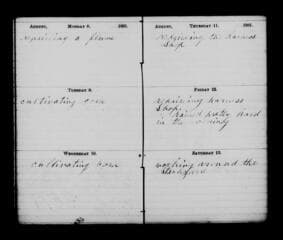 AUGUST, MONDAY 8.
repairing a
TUESDAY 9.
cultivating corn
WEDNESDAY 10.
cultivating corn
AUGUST, THURSDAY 11.
repairing the harness
shop
FRIDAY 12.
repairing harness
shop
rained pretty hard
in the evening
SATURDAY 13.
working around the